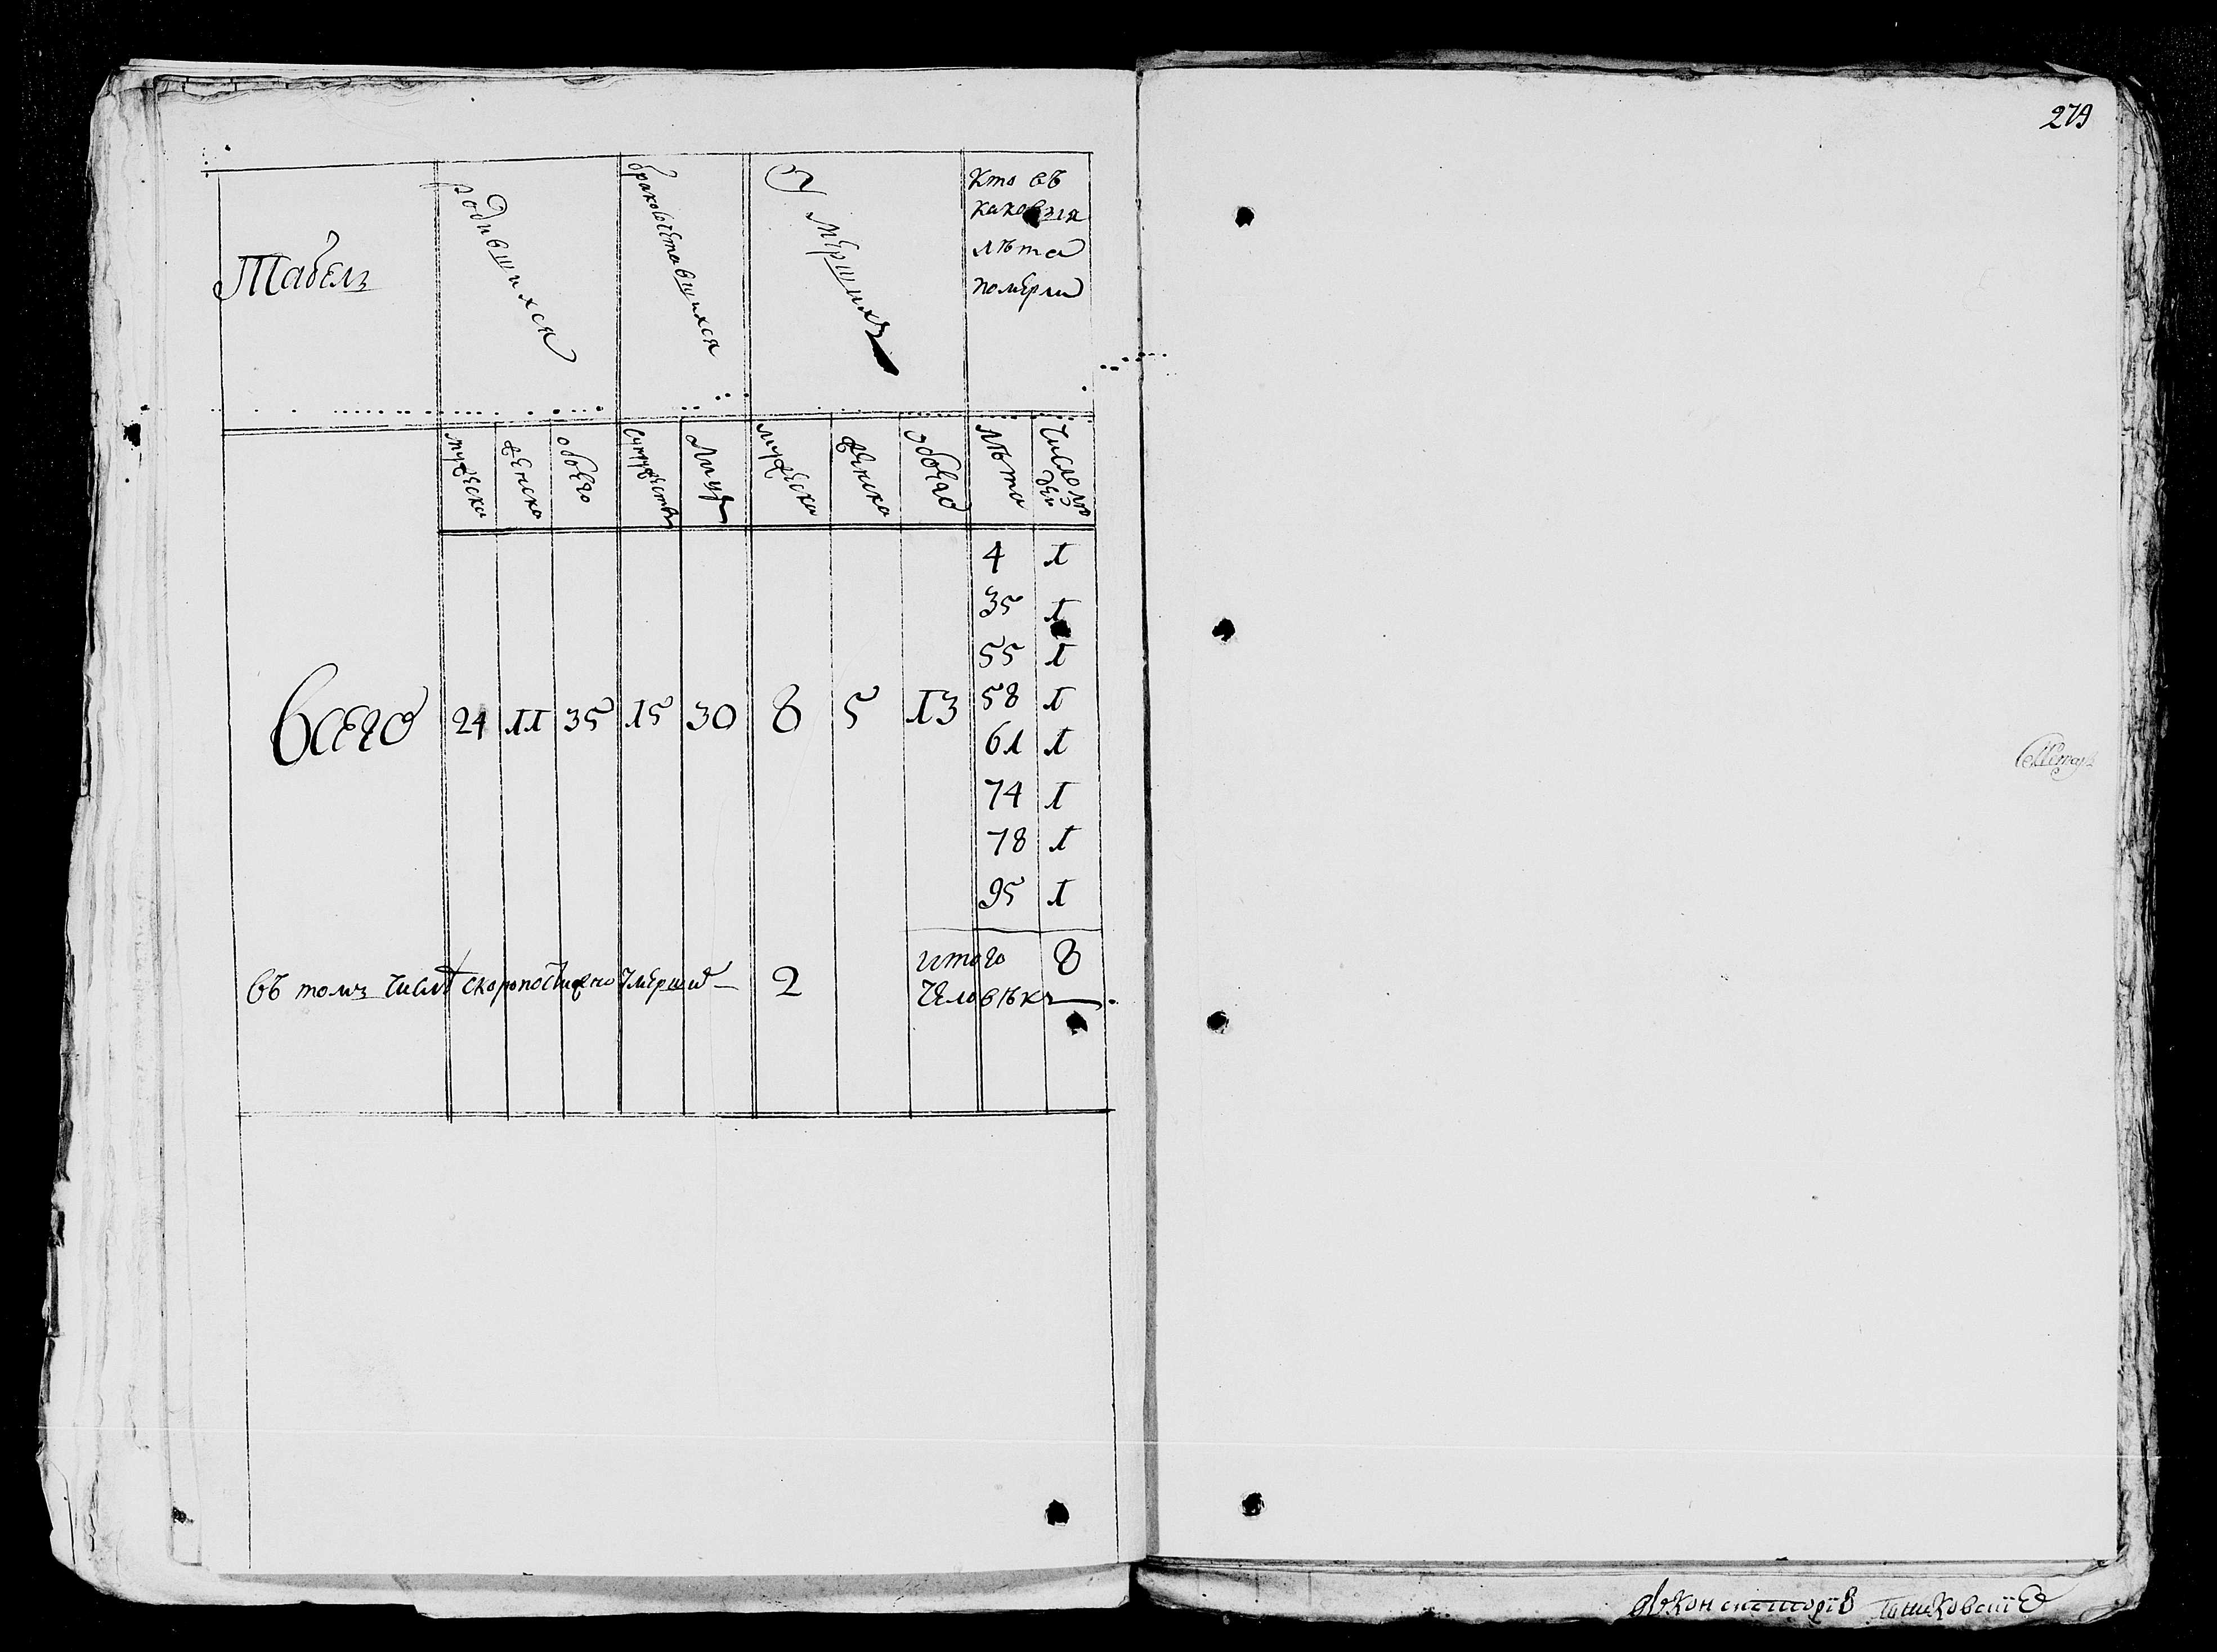 279
Табель
родившихся
бракосочетавшихся
Умершихъ
Кто въ
каковыя
лѣта
померли
мужеска
женска
обоего
супружествъ
Лицъ
мужеска
женска
обоего
Лѣта
Число лю
дей
Всего 24 11 35 15 30 8 5 13
4 1
35 1
55 1
58 1
61 1
74 1
78 1
95 1
итого 8
человѣкъ
въ томъ числѣ скоропостижно умерший 2